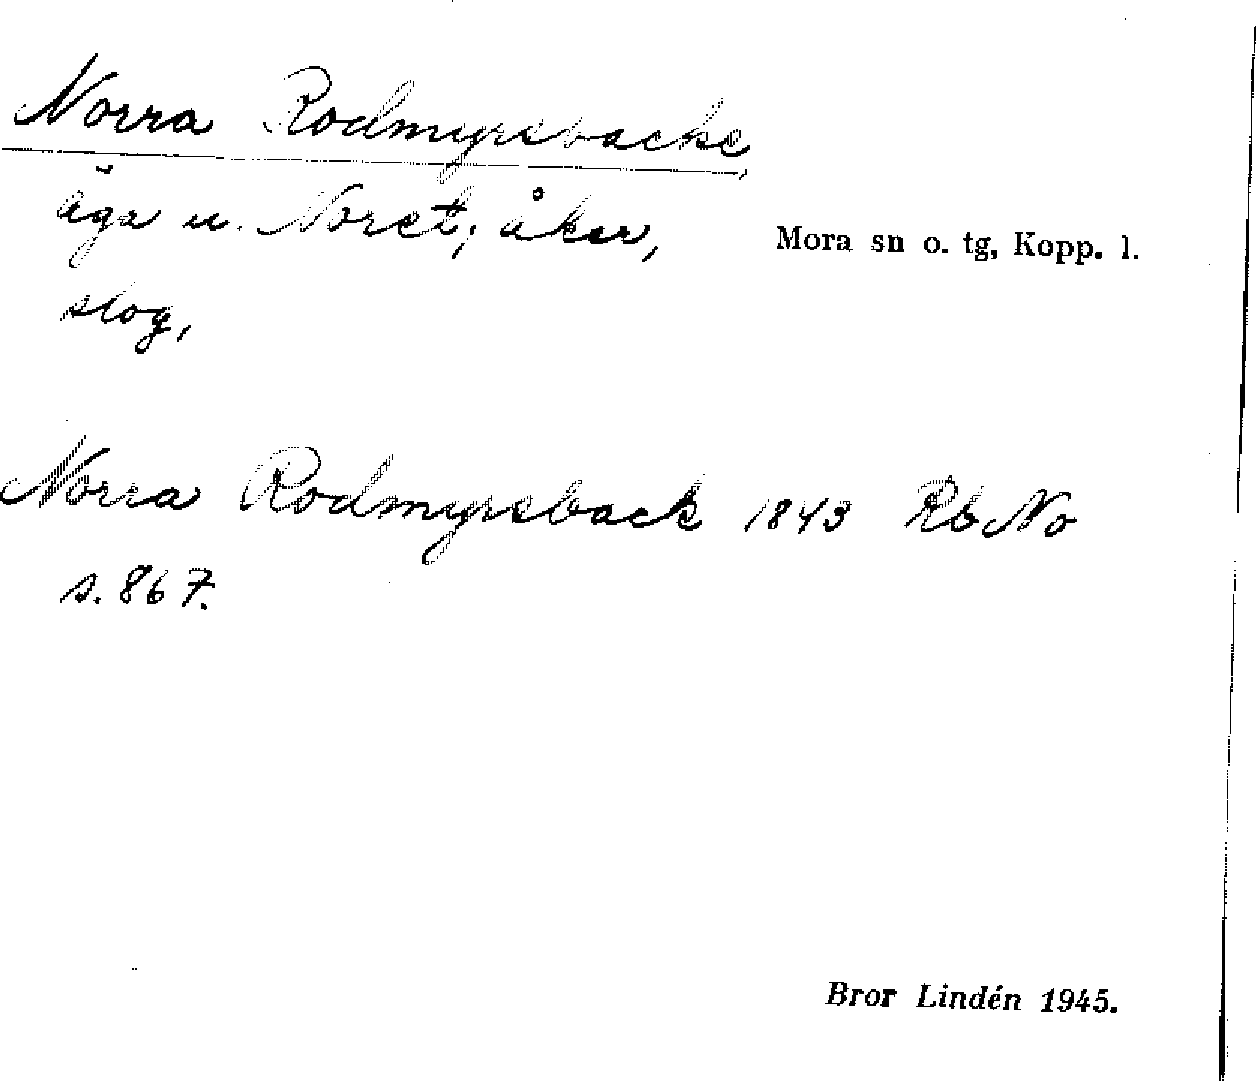 Norra Rodmyrsbacke,
äga u. Noret; åker,
Mora sn o. tg, Kopp. l.
slog,
Norra Rodmyrsback 1843 Rb No
s. 867.
Bror Lindén 1945.